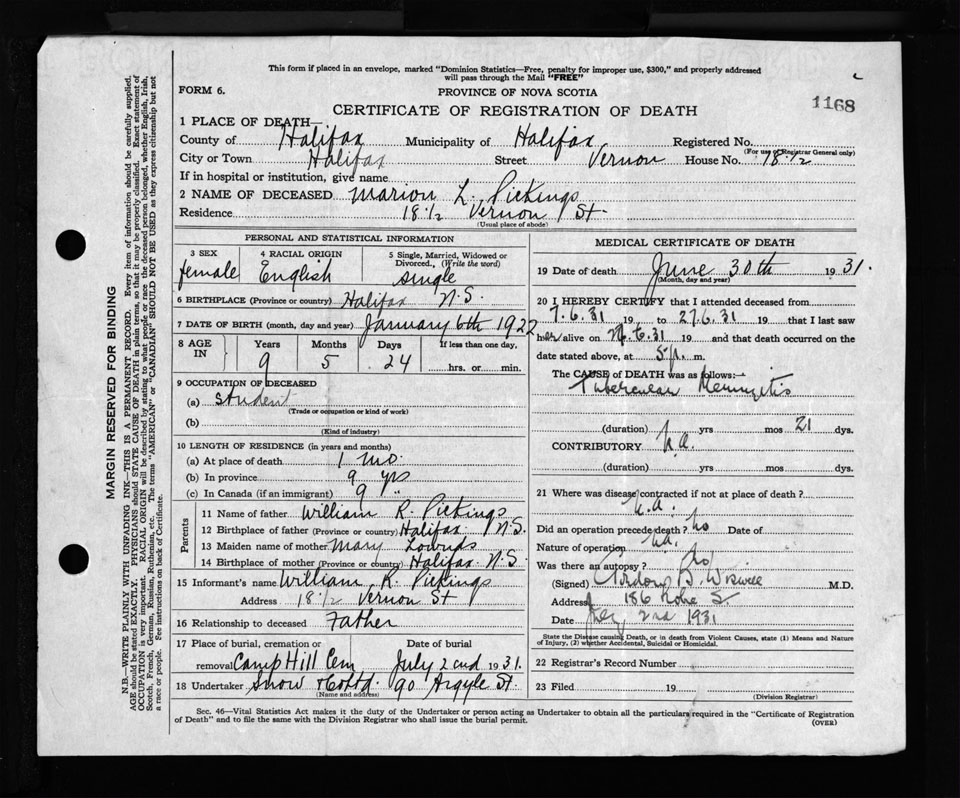 This form if placed in an envelope, marked "Dominion Statistics—Free, penalty for improper use, $300," and properly addressed
will pass through the Mail "FREE"
FORM 6.
PROVINCE OF NOVA SCOTIA
1168
CERTIFICATE OF REGISTRATION OF DEATH
1 PLACE OF DEATH—
County of Halifax Municipality of Halifax Registered No.
(For use of Registrar General only)
City or Town Halifax Street Vernon House No. 18 1/2
If in hospital or institution, give name
2 NAME OF DECEASED Marion L. Pickings
Residence 18 1/2 Vernon St.
(Usual place of abode)
PERSONAL AND STATISTICAL INFORMATION
3 SEX
female
4 RACIAL ORIGIN
English
5 Single, Married, Widowed or
Divorced, (Write the word)
single
6 BIRTHPLACE (Province or country) Halifax N.S.
7 DATE OF BIRTH (month, day and year) January 6th 1922
8 AGE IN
Years Months Days If less than one day,
9 5 24 hrs. or min.
9 OCCUPATION OF DECEASED
(a) Student
(Trade or occupation or kind of work)
(b)
(Kind of industry)
10 LENGTH OF RESIDENCE (in years and months)
(a) At place of death 1 mo.
(b) In province 9 yrs
(c) In Canada (if an immigrant) 9 "
Parents
11 Name of father William R. Pickings
12 Birthplace of father (Province or country) Halifax N.S.
13 Maiden name of mother Mary
14 Birthplace of mother (Province or country) Halifax N.S.
15 Informant's name William R. Pickings
Address 18 1/2 Vernon St
16 Relationship to deceased Father
17 Place of burial, cremation or Date of burial
removal Camp Hill Cem July 2nd 1931.
18 Undertaker Snow & Co Ltd 90 Argyle St.
(Name and address)
MEDICAL CERTIFICATE OF DEATH
19 Date of death June 30th 1931.
(Month, day and year)
20 I HEREBY CERTIFY that I attended deceased from
7.6.31 19 to 27.6.31 19 that I last saw
her alive on 6.31 19 and that death occurred on the
date stated above, at 5 p. m.
The CAUSE of DEATH was as follows:—
Tubercular Meningitis
(duration) yrs mos 21 dys.
CONTRIBUTORY n.a.
(duration) yrs mos dys.
21 Where was disease contracted if not at place of death?
n.a.
Did an operation precede death? no Date of
Nature of operation na.
Was there an autopsy? no
(Signed) Gordon B. Wiswell M.D.
Address 186
Date 2nd 1931
State the Disease causing Death, or in death from Violent Causes, state (1) Means and Nature
of Injury, (2) whether Accidental, Suicidal or Homicidal.
22 Registrar's Record Number
23 Filed 19
(Division Registrar)
Sec. 46—Vital Statistics Act makes it the duty of the Undertaker or person acting as Undertaker to obtain all the particulars required in the "Certificate of Registration
of Death" and to file the same with the Division Registrar who shall issue the burial permit.
(OVER)
MARGIN RESERVED FOR BINDING
N.B.—WRITE PLAINLY WITH UNFADING INK—THIS IS A PERMANENT RECORD. Every item of information should be carefully supplied.
AGE should be stated EXACTLY. PHYSICIANS should STATE CAUSE OF DEATH in plain terms, so that it may be properly classified. Exact statement of
OCCUPATION is very important. RACIAL ORIGIN will be described by stating to what people or race the deceased person belonged, whether English, Irish,
Scotch, French, German, Russian, Ruthenian, etc. The terms "AMERICAN" or "CANADIAN" SHOULD NOT BE USED as they express citizenship but not
a race or people. See instructions on back of Certificate.